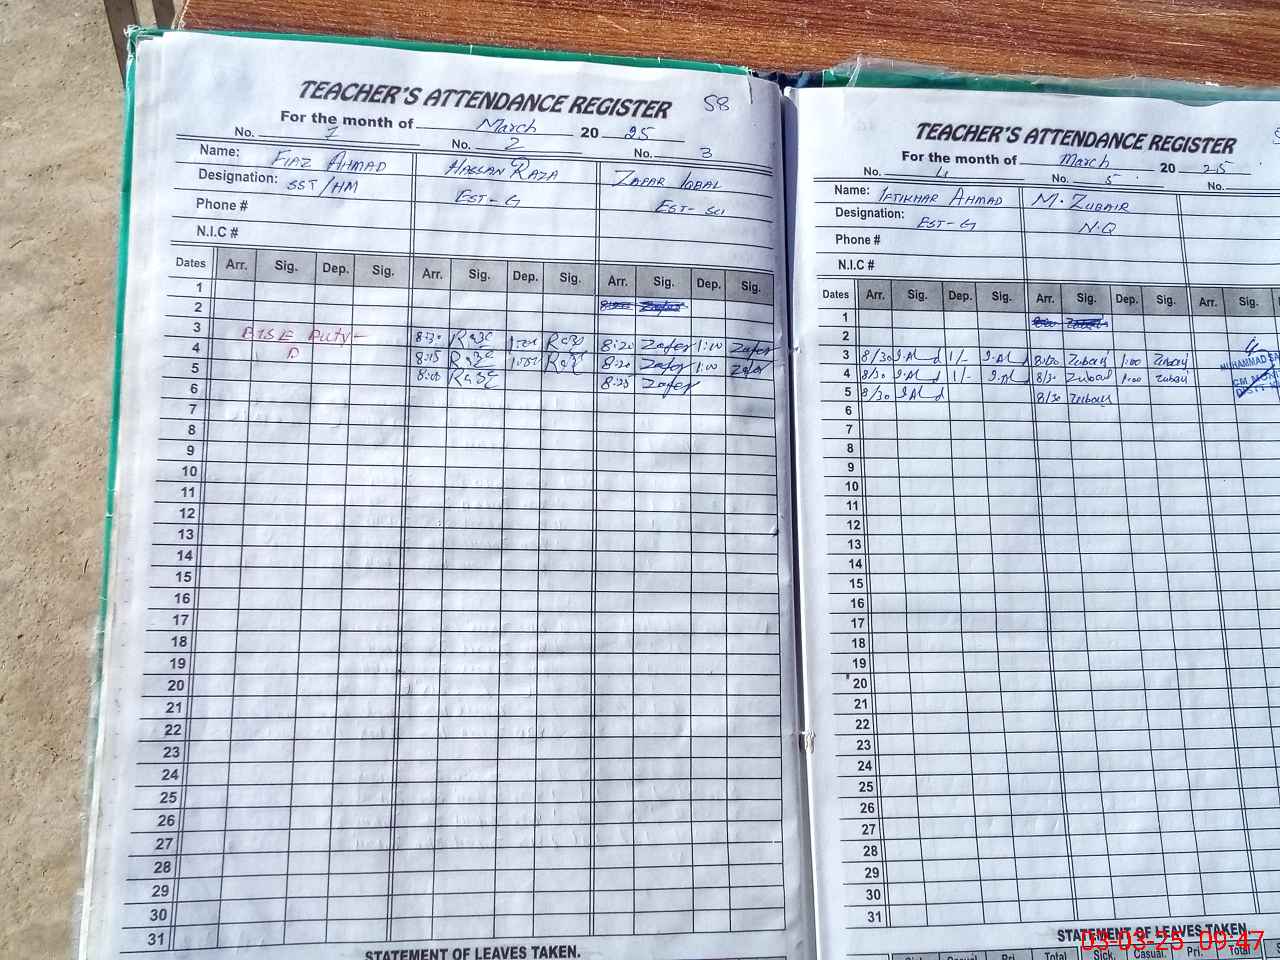 TEACHER'S ATTENDANCE REGISTER 58
For the month of March 20 25
No. 1 No. 2 No. 3
Name: FIAZ AHMAD HASSAN RAZA ZAFAR IQBAL
Designation: SST/HM EST-G EST-SCI
Phone #
N.I.C #
Dates Arr. Sig. Dep. Sig. Arr. Sig. Dep. Sig. Arr. Sig. Dep. Sig.
1
2
3 BISE Duty 8:30 Raza Raza 8:20 Zafar 1:00 Zafar
4 8:15 Raza Raza 8:20 Zafar 1:00 Zafar
5 8:00 Raza 8:25 Zafar
6
7
8
9
10
11
12
13
14
15
16
17
18
19
20
21
22
23
24
25
26
27
28
29
30
31
STATEMENT OF LEAVES TAKEN.
TEACHER'S ATTENDANCE REGISTER
For the month of March 20 25
No. 4 No. 5 No.
Name: IFTIKHAR AHMAD M. ZUBAIR
Designation: EST-G N.Q
Phone #
N.I.C #
Dates Arr. Sig. Dep. Sig. Arr. Sig. Dep. Sig. Arr. Sig.
1
2
3 8/30 1/- 8:30 Zubair 1:00 Zubair
4 8/30 1/- 8/30 Zubair 1:00 Zubair
5 8/30 8/30 Zubair
6
7
8
9
10
11
12
13
14
15
16
17
18
19
20
21
22
23
24
25
26
27
28
29
30
31
STATEMENT OF LEAVES TAKEN.
Sick. Casual. Pri. Total Sick. Casual. Pri. Total
03-03-25 09:47